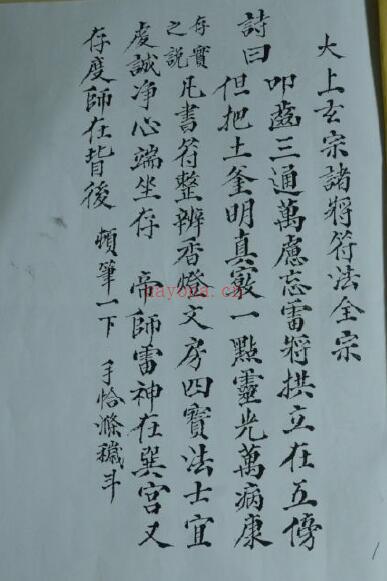 大上玄宗諸將符法全宗
詩曰 叩齒三通萬慮忘雷將拱立在五傍
但把土釜明真竅一點靈光萬病康
存實之説 凡書符整辨香燈文房四寶法士宜
虔誠净心端坐存 帝師雷神在巽宮又
存度師在背後 頓筆一下 手恰滌穢斗
nayona.cn
1